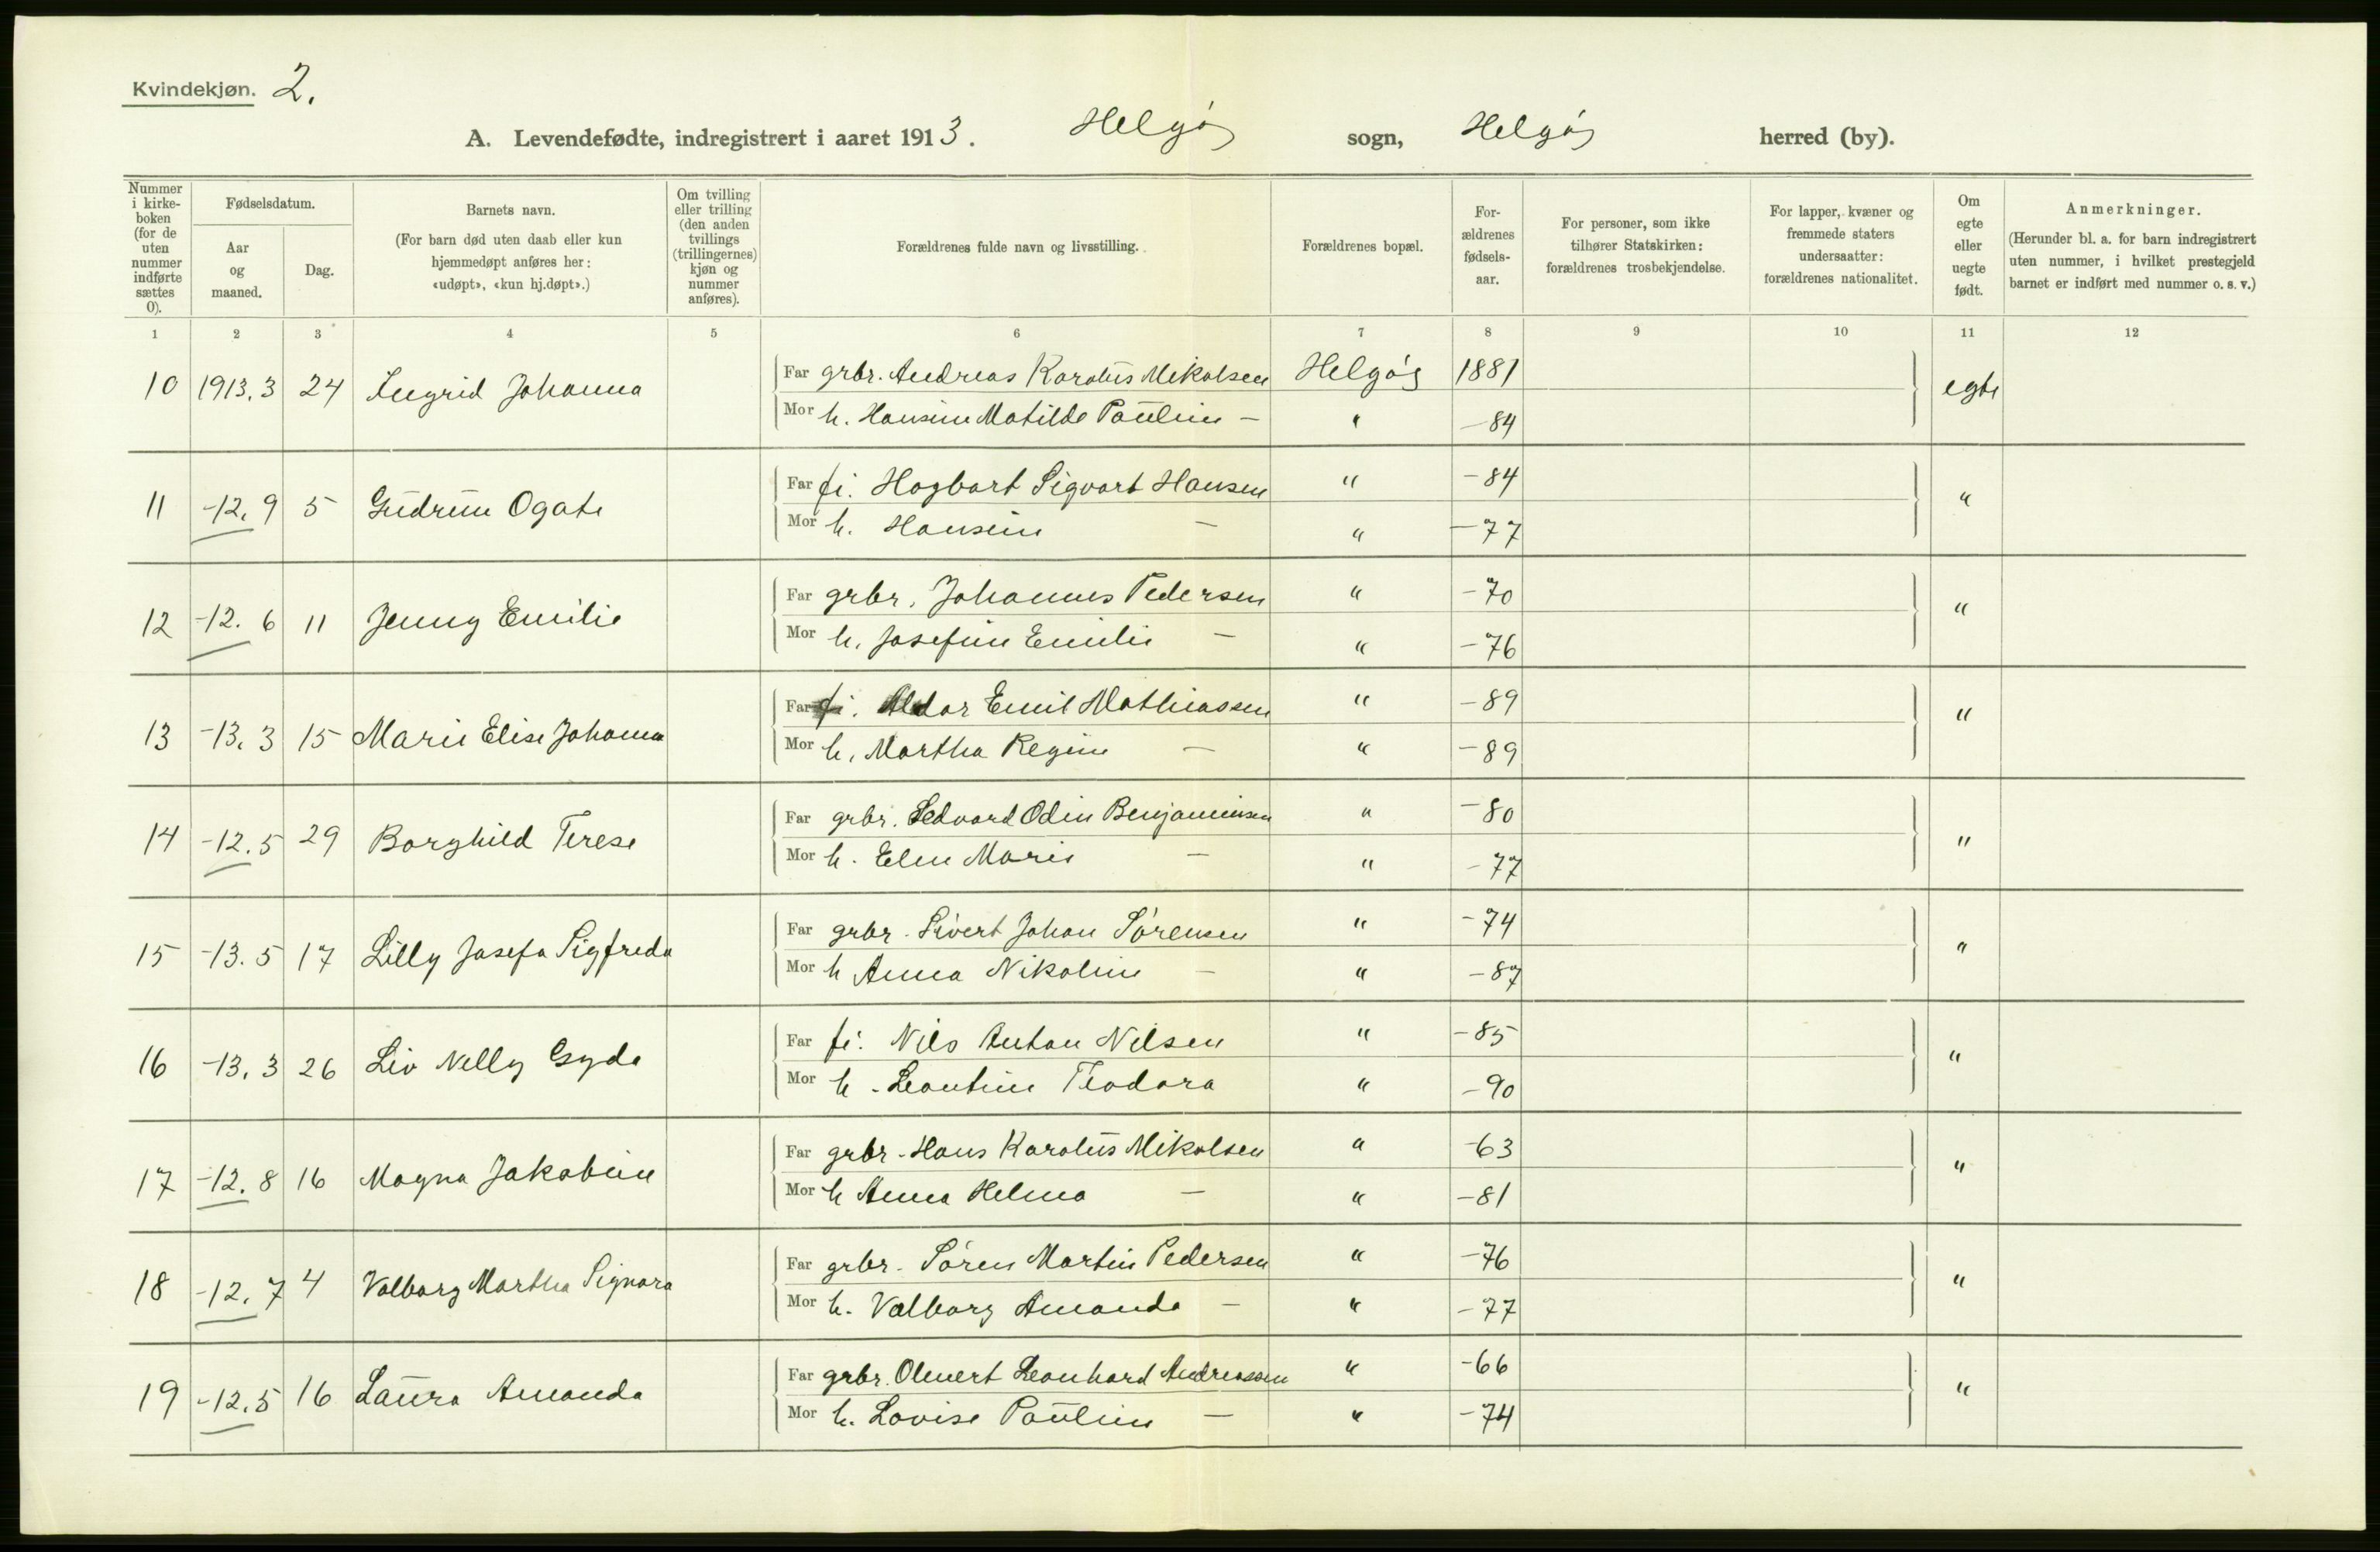 Kvindekjøn. 2.
A. Levendefødte, indregistrert i aaret 1913. Helgøy sogn, Helgøy herred (by).
Nummer i kirke-boken (for de uten nummer indførte sættes 0).
Fødselsdatum.
Aar og maaned.
Dag.
Barnets navn.
(For barn død uten daab eller kun hjemmedøpt anføres her: «udøpt», «kun hj.døpt».)
Om tvilling eller trilling (den anden tvillings (trillingernes) kjøn og nummer anføres).
Forældrenes fulde navn og livsstilling.
Forældrenes bopæl.
For-ældrenes fødsels-aar.
For personer, som ikke tilhører Statskirken: forældrenes trosbekjendelse.
For lapper, kvæner og fremmede staters undersaatter: forældrenes nationalitet.
Om egte eller uegte født.
Anmerkninger.
(Herunder bl. a. for barn indregistrert uten nummer, i hvilket prestegjeld barnet er indført med nummer o. s. v.)
1 2 3 4 5 6 7 8 9 10 11 12
10 1913.3 24 Ingrid Johanna Far grbr. Andreas Karolus Mikalsen Helgøy 1881 egte
Mor h. Hansine Matilde Pauline — " -84
11 -12.9 5 Gudrun Ogate Far fi. Hagbart Sigvart Hansen " -84 "
Mor h. Hansine — " -77
12 -12.6 11 Jenny Emilie Far grbr. Johannes Pedersen " -70 "
Mor h. Josefine Emilie — " -76
13 -13.3 15 Marie Elise Johanna Far fi. Aldor Emil Mathiassen " -89 "
Mor h. Martha Regine — " -89
14 -12.5 29 Borghild Terese Far grbr. Edvard Odin Benjaminsen " -80 "
Mor h. Elen Marie — " -77
15 -13.5 17 Lilly Josefa Sigfreda Far grbr. Sivert Johan Sørensen " -74 "
Mor h Anna Nikoline — " -87
16 -13.3 26 Liv Nelly Gyda Far fi. Nils Anton Nilsen " -85 "
Mor h. Leontine Teodora " -90
17 -12.8 16 Magna Jakobine Far grbr. Hans Karolus Mikalsen " -63 "
Mor h Anna Helma — " -81
18 -12.7 4 Valborg Martha Signora Far grbr. Søren Martin Pedersen " -76 "
Mor h. Valborg Amanda — " -77
19 -12.5 16 Laura Amanda Far grbr. Olmert Leonhard Andreassen " -66 "
Mor h. Lovise Pauline — " -74